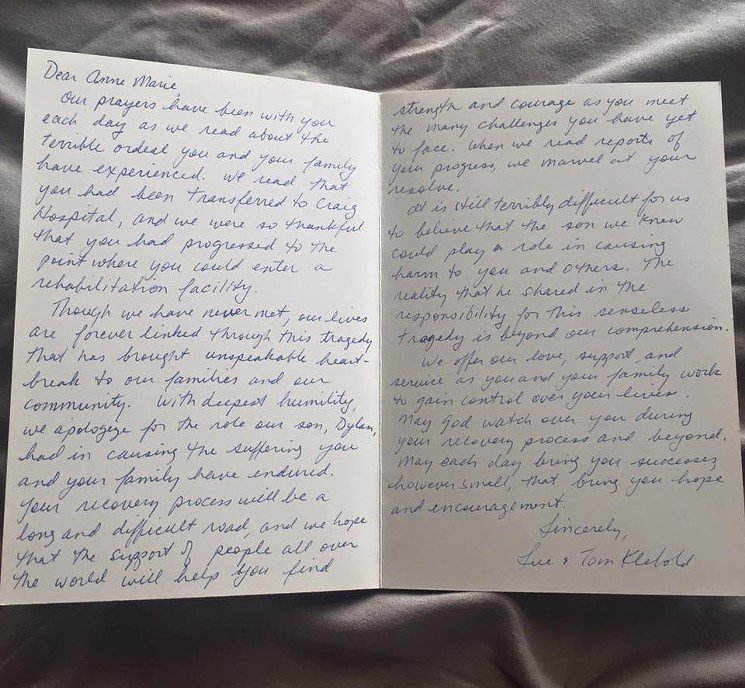 Dear Anne Marie,
Our prayers have been with you
each day as we read about the
terrible ordeal you and your family
have experienced. We read that
you had been transferred to Craig
Hospital, and we were so thankful
that you had progressed to the
point where you could enter a
rehabilitation facility.
Though we have never met, our lives
are forever linked through this tragedy
that has brought unspeakable heart-
break to our families and our
community. With deepest humility,
we apologize for the role our son, Dylan,
had in causing the suffering you
and your family have endured.
Your recovery process will be a
long and difficult road, and we hope
that the support of people all over
the world will help you find
strength and courage as you meet
the many challenges you have yet
to face. When we read reports of
your progress, we marvel at your
resolve.
It is still terribly difficult for us
to believe that the son we knew
could play a role in causing
harm to you and others. The
reality that he shared in the
responsibility for this senseless
tragedy is beyond our comprehension.
We offer our love, support, and
service as you and your family work
to gain control over your lives.
May God watch over you during
your recovery process and beyond.
May each day bring you successes,
however small, that bring you hope
and encouragement.
Sincerely,
Sue & Tom Klebold